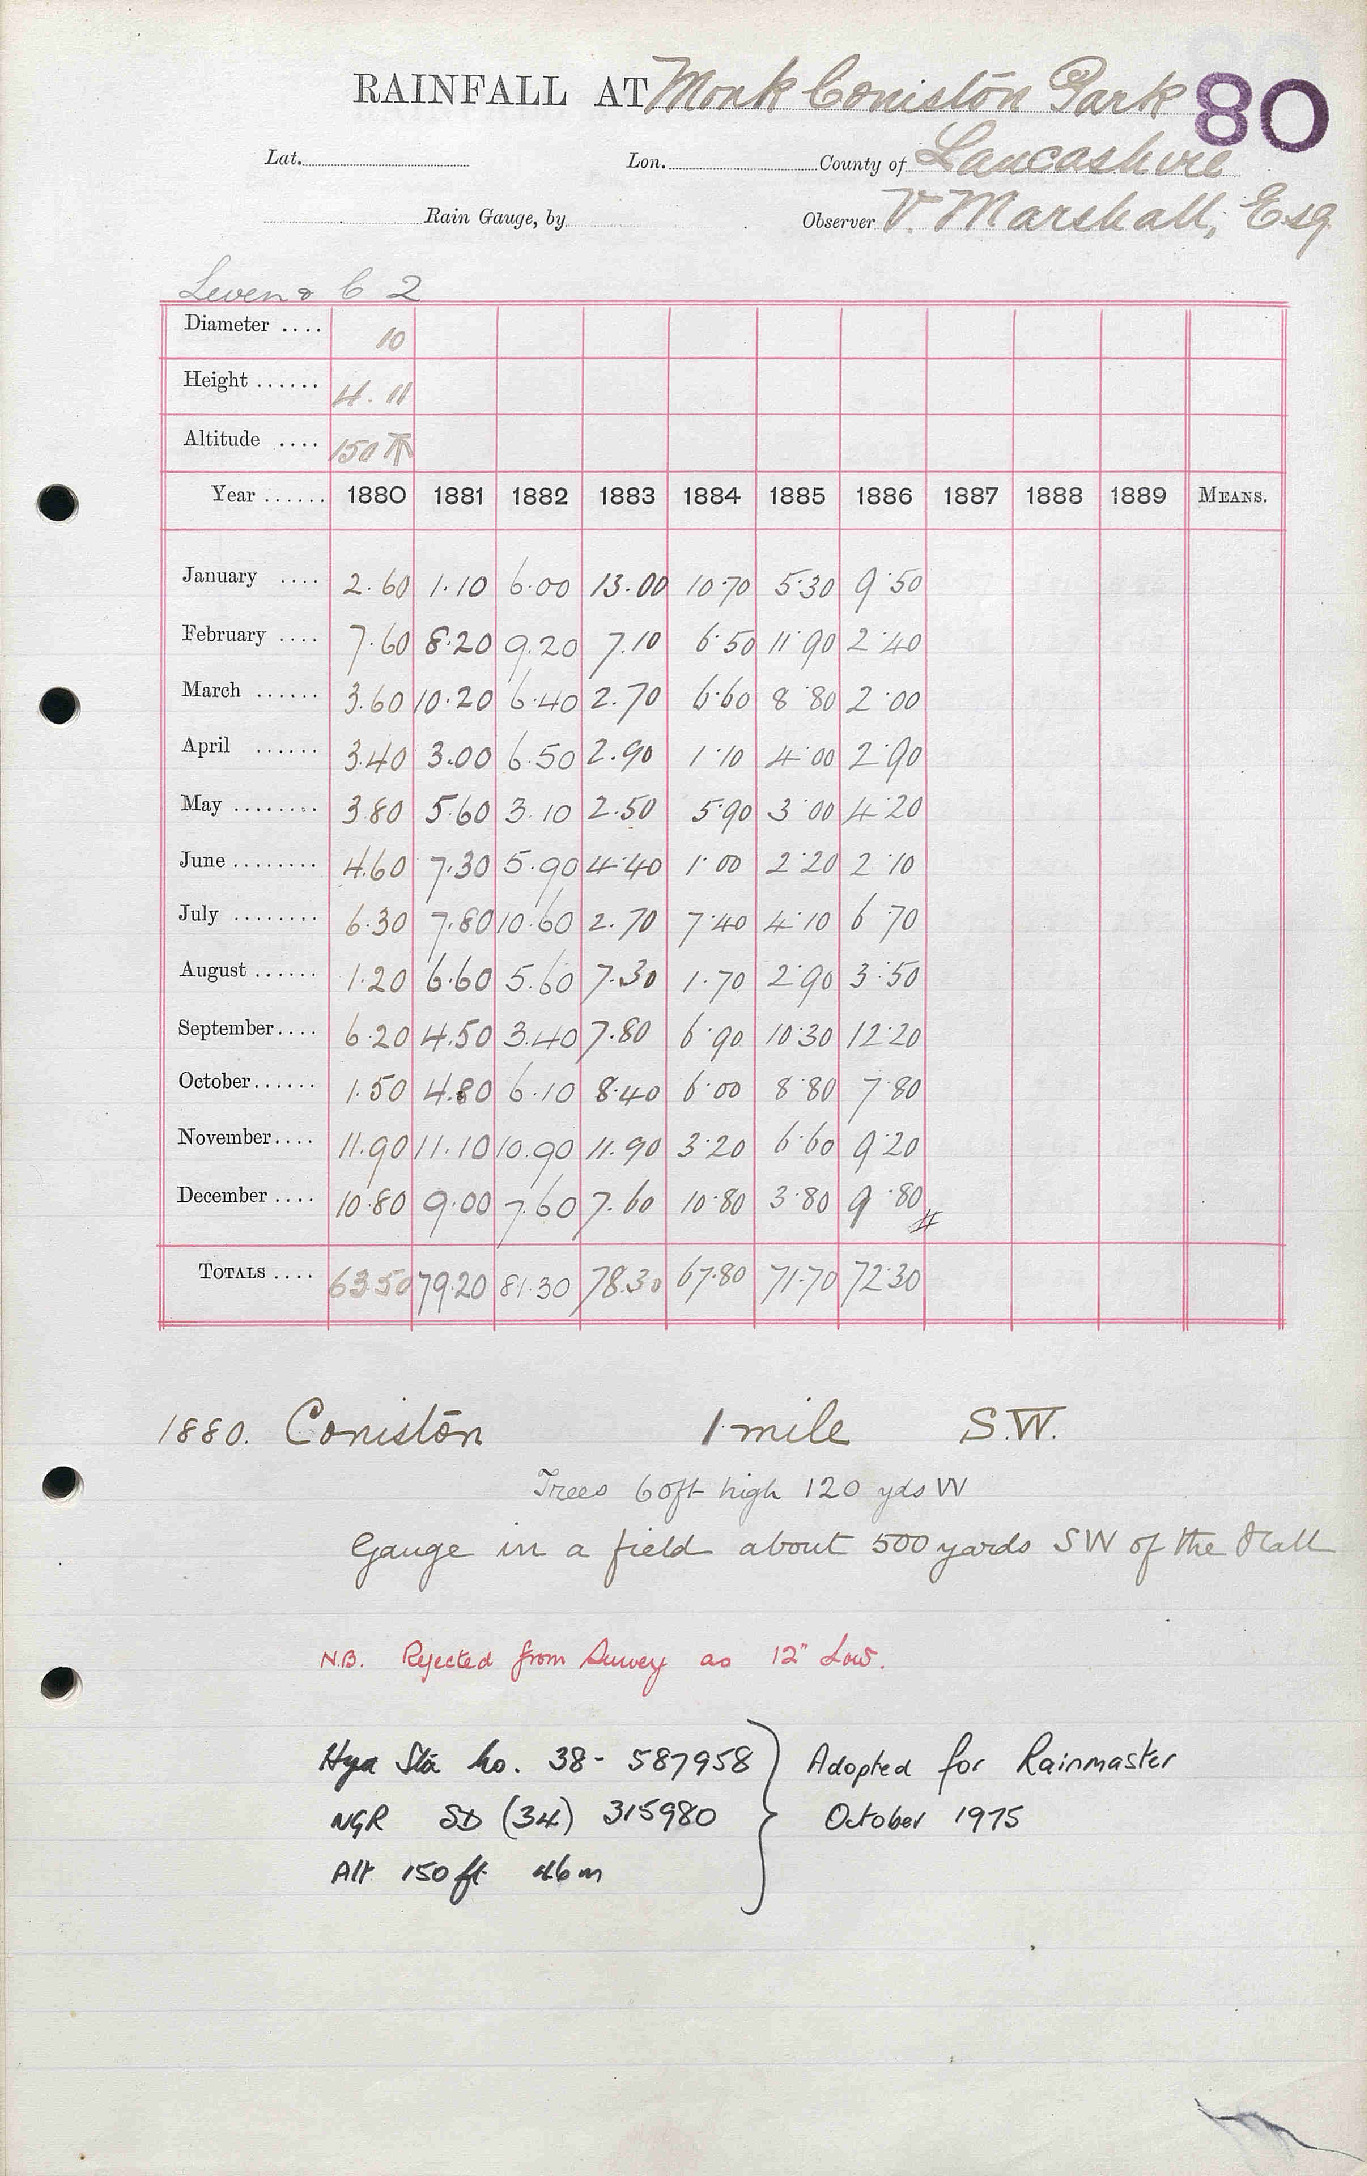 RAINFALL AT Monk Coniston Park 80
Lat. Lon. County of Lancashire
Rain Gauge, by Observer V. Marshall, Esq
Leven & C 2
Diameter .... 10
Height ...... 4. 11
Altitude .... 150
Year ...... 1880 1881 1882 1883 1884 1885 1886 1887 1888 1889 MEANS.
January .... 2.60 1.10 6.00 13.00 10.70 5.30 9.50
February .... 7.60 8.20 9.20 7.10 6.50 11.90 2.40
March ...... 3.60 10.20 6.40 2.70 6.60 8.80 2.00
April ...... 3.40 3.00 6.50 2.90 1.10 4.00 2.90
May ........ 3.80 5.60 3.10 2.50 5.90 3.00 4.20
June ........ 4.60 7.30 5.90 4.40 1.00 2.20 2.10
July ........ 6.30 7.80 10.60 2.70 7.40 4.10 6.70
August ...... 1.20 6.60 5.60 7.30 1.70 2.90 3.50
September.... 6.20 4.50 3.40 7.80 6.90 10.30 12.20
October...... 1.50 4.80 6.10 8.40 6.00 8.80 7.80
November.... 11.90 11.10 10.90 11.90 3.20 6.60 9.20
December .... 10.80 9.00 7.60 7.60 10.80 3.80 9.80
TOTALS .... 63.50 79.20 81.30 78.30 67.80 71.70 72.30
1880. Coniston 1 mile S.W.
Trees 60ft high 120 yds W
Gauge in a field about 500 yards SW of the Hall
N.B. Rejected from Survey as 12" Low.
Hya Sta No. 38- 587958 } Adopted for Rainmaster
NGR SD (34) 315980 October 1975
Alt 150 ft 46 m